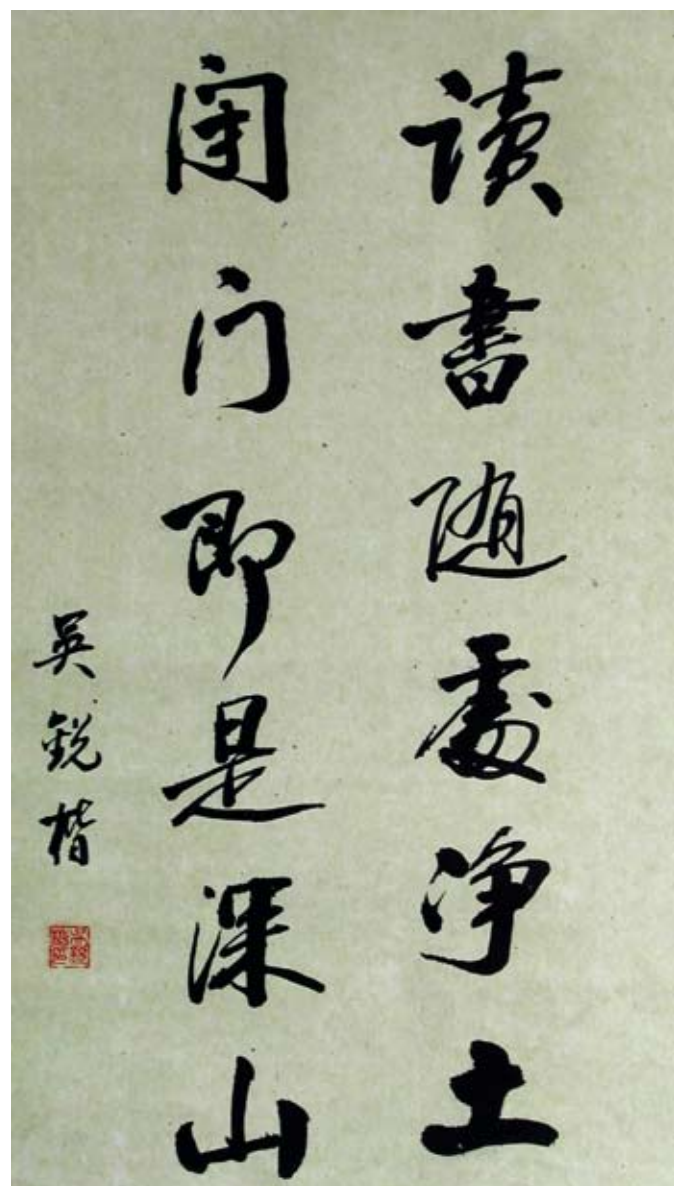 读書随處净土
闭门即是深山
吴锐楷